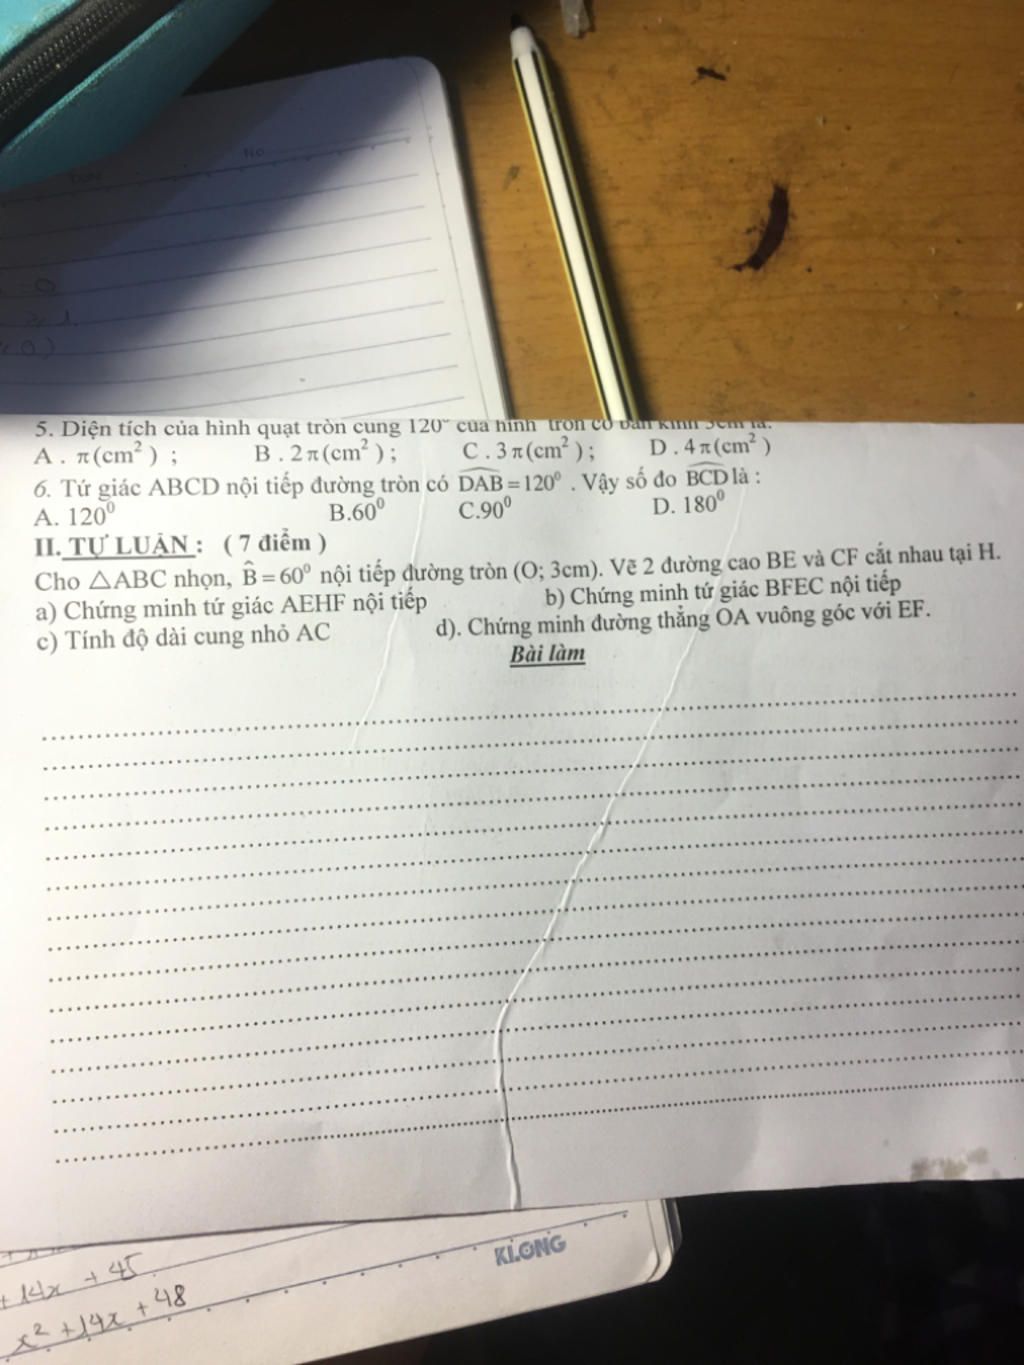 No
5. Diện tích của hình quạt tròn cung 120° của hình tròn có bán kính 3cm là:
A . π(cm²) ; B . 2π(cm²) ; C . 3π(cm²) ; D . 4π(cm²)
6. Tứ giác ABCD nội tiếp đường tròn có DAB = 120⁰ . Vậy số đo BCD là :
A. 120⁰ B.60⁰ C.90⁰ D. 180⁰
II. TỰ LUẬN : ( 7 điểm )
Cho △ABC nhọn, B̂ = 60⁰ nội tiếp đường tròn (O; 3cm). Vẽ 2 đường cao BE và CF cắt nhau tại H.
a) Chứng minh tứ giác AEHF nội tiếp b) Chứng minh tứ giác BFEC nội tiếp
c) Tính độ dài cung nhỏ AC d). Chứng minh đường thẳng OA vuông góc với EF.
Bài làm
KLONG
+ 14x + 45
x² + 14x + 48